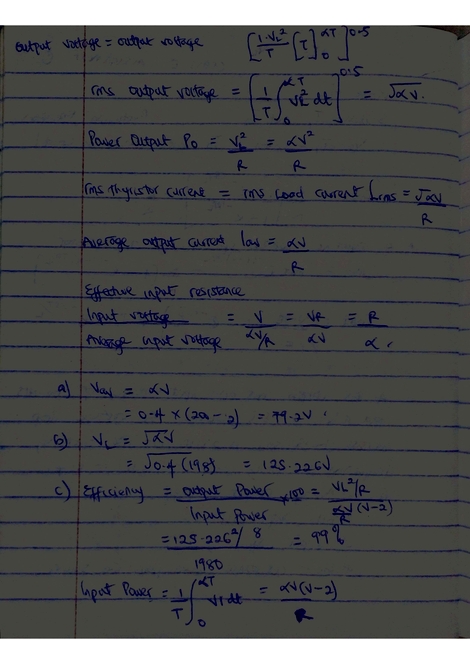 output voltage = output voltage [1·VL²/T [T]₀^αT]^0.5
rms output voltage = [1/T ∫₀^αT VL² dt]^0.5 = √αV.
Power Output Po = VL²/R = αV²/R
rms thyristor current = rms Load current Irms = √αV/R
Average output current Iav = αV/R
Effective input resistance
Input voltage / Average input voltage = V/(αV/R) = VR/αV = R/α.
a) Vav = αV
= 0.4 × (200 - 2) = 79.2V.
b) VL = √αV
= √0.4 (198) = 125.226V
c) Efficiency = Output Power/Input Power ×100 = (VL²/R)/(αV/R (V-2))
= (125.226²/8)/1980 = 99%
Input Power = 1/T ∫₀^αT VI dt = αV(V-2)/R